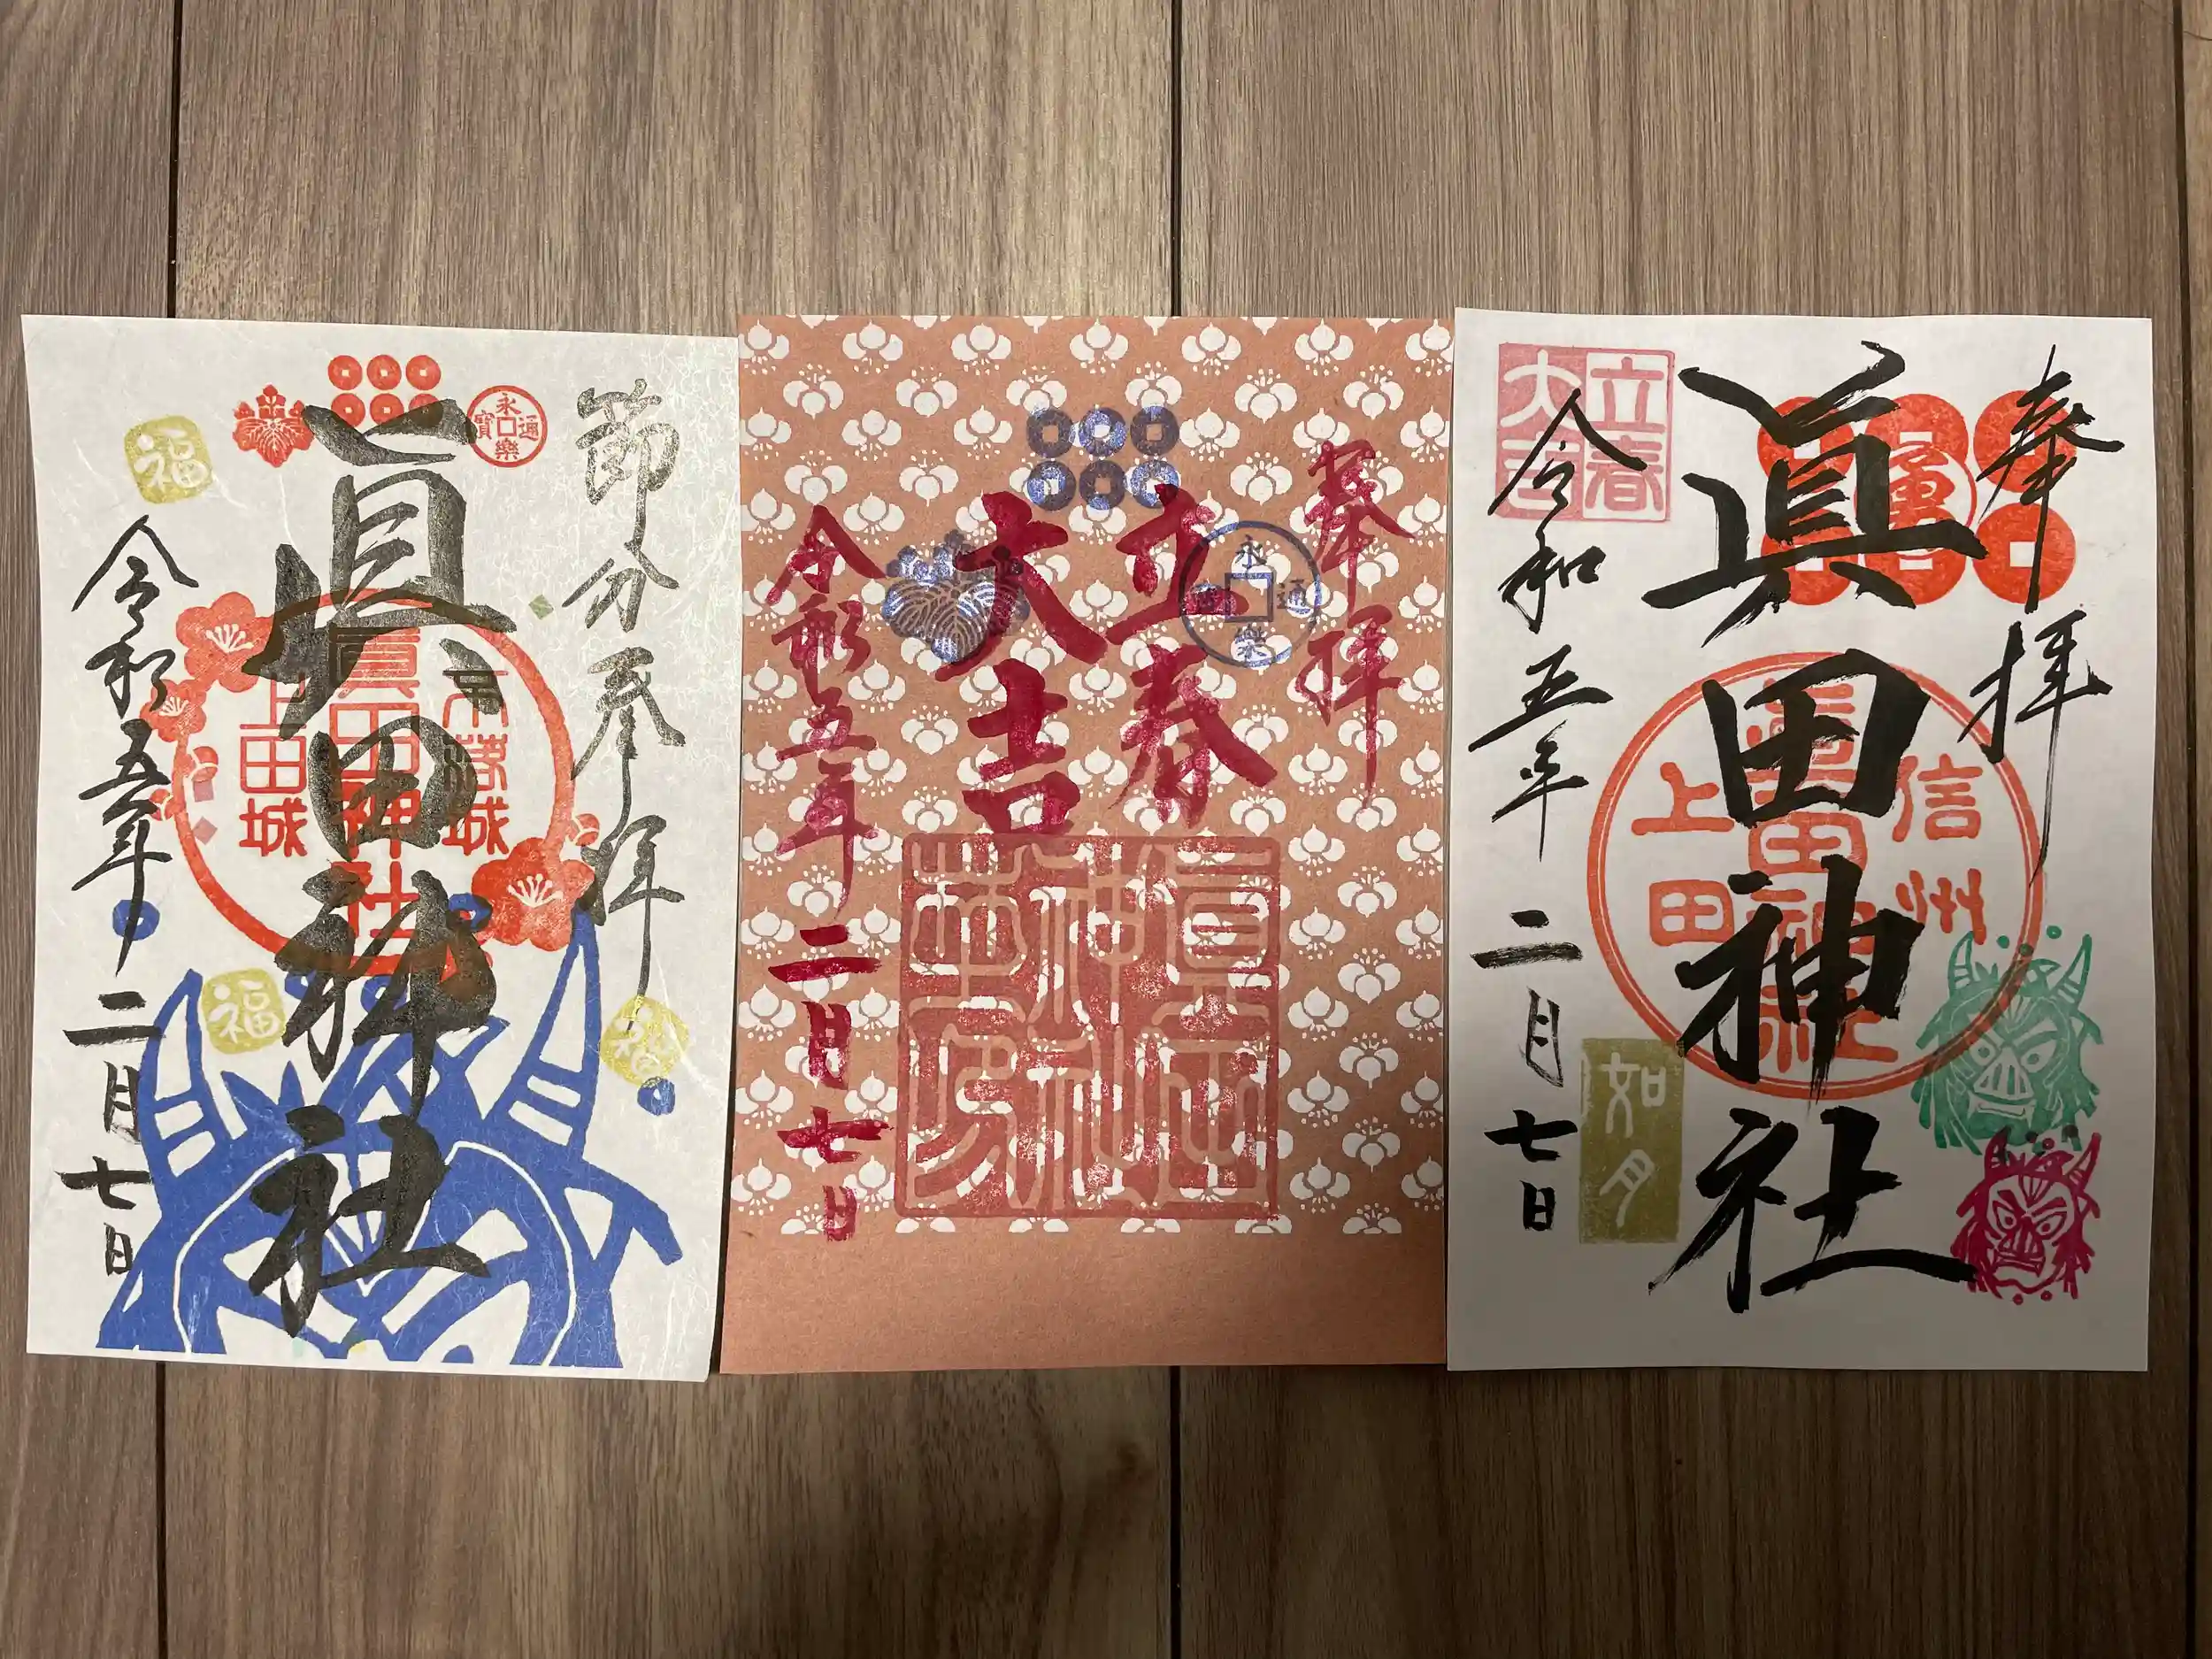 節分参拝
永樂通寶
眞田神社
不落城
眞田神社
上田城
福
福
福
令和五年二月七日
奉拝
永樂通
立春
大吉
眞田
神社
令和五年二月七日
奉拝
眞田神社
信州
眞田神社
上田
立春
大吉
令和五年二月七日
如月